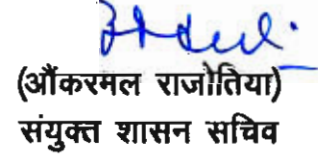 (औंकरमल राजोतिया)
संयुक्त शासन सचिव